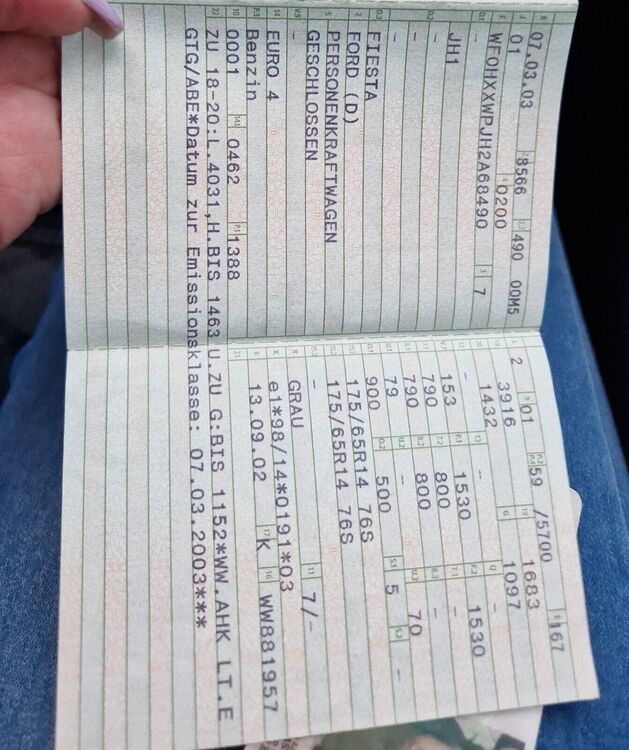 B 07.03.03 2.1 8566 2.2 490 00M5
J 01 4 0200
E WF0HXXWPJH2A68490 3 7
D.1 -
JH1
D.2 -
-
D.3 FIESTA
2 FORD (D)
5 PERSONENKRAFTWAGEN
GESCHLOSSEN
V.9 -
14 EURO 4
P.3 Benzin
10 0001 14.1 0462 P.1 1388
L 2 9 01 P.2 P.4 59 /5700 T 167
18 3916 19 1683
20 1432 G 1097
12 - 13 - Q -
V.7 153 F.1 1530 F.2 1530
7.1 790 7.2 800 7.3 -
8.1 790 8.2 800 8.3 -
U.1 79 U.2 - U.3 70
O.1 900 O.2 500 S.1 5 S.2 -
15.1 175/65R14 76S
15.2 175/65R14 76S
15.3 -
R GRAU 11 7/-
K e1*98/14*0191*03
6 13.09.02 17 K 16 WW881957
21
22 ZU 18-20:L.4031,H.BIS 1463 U.ZU G:BIS 1152*WW.AHK LT.E
GTG/ABE*Datum zur Emissionsklasse: 07.03.2003***